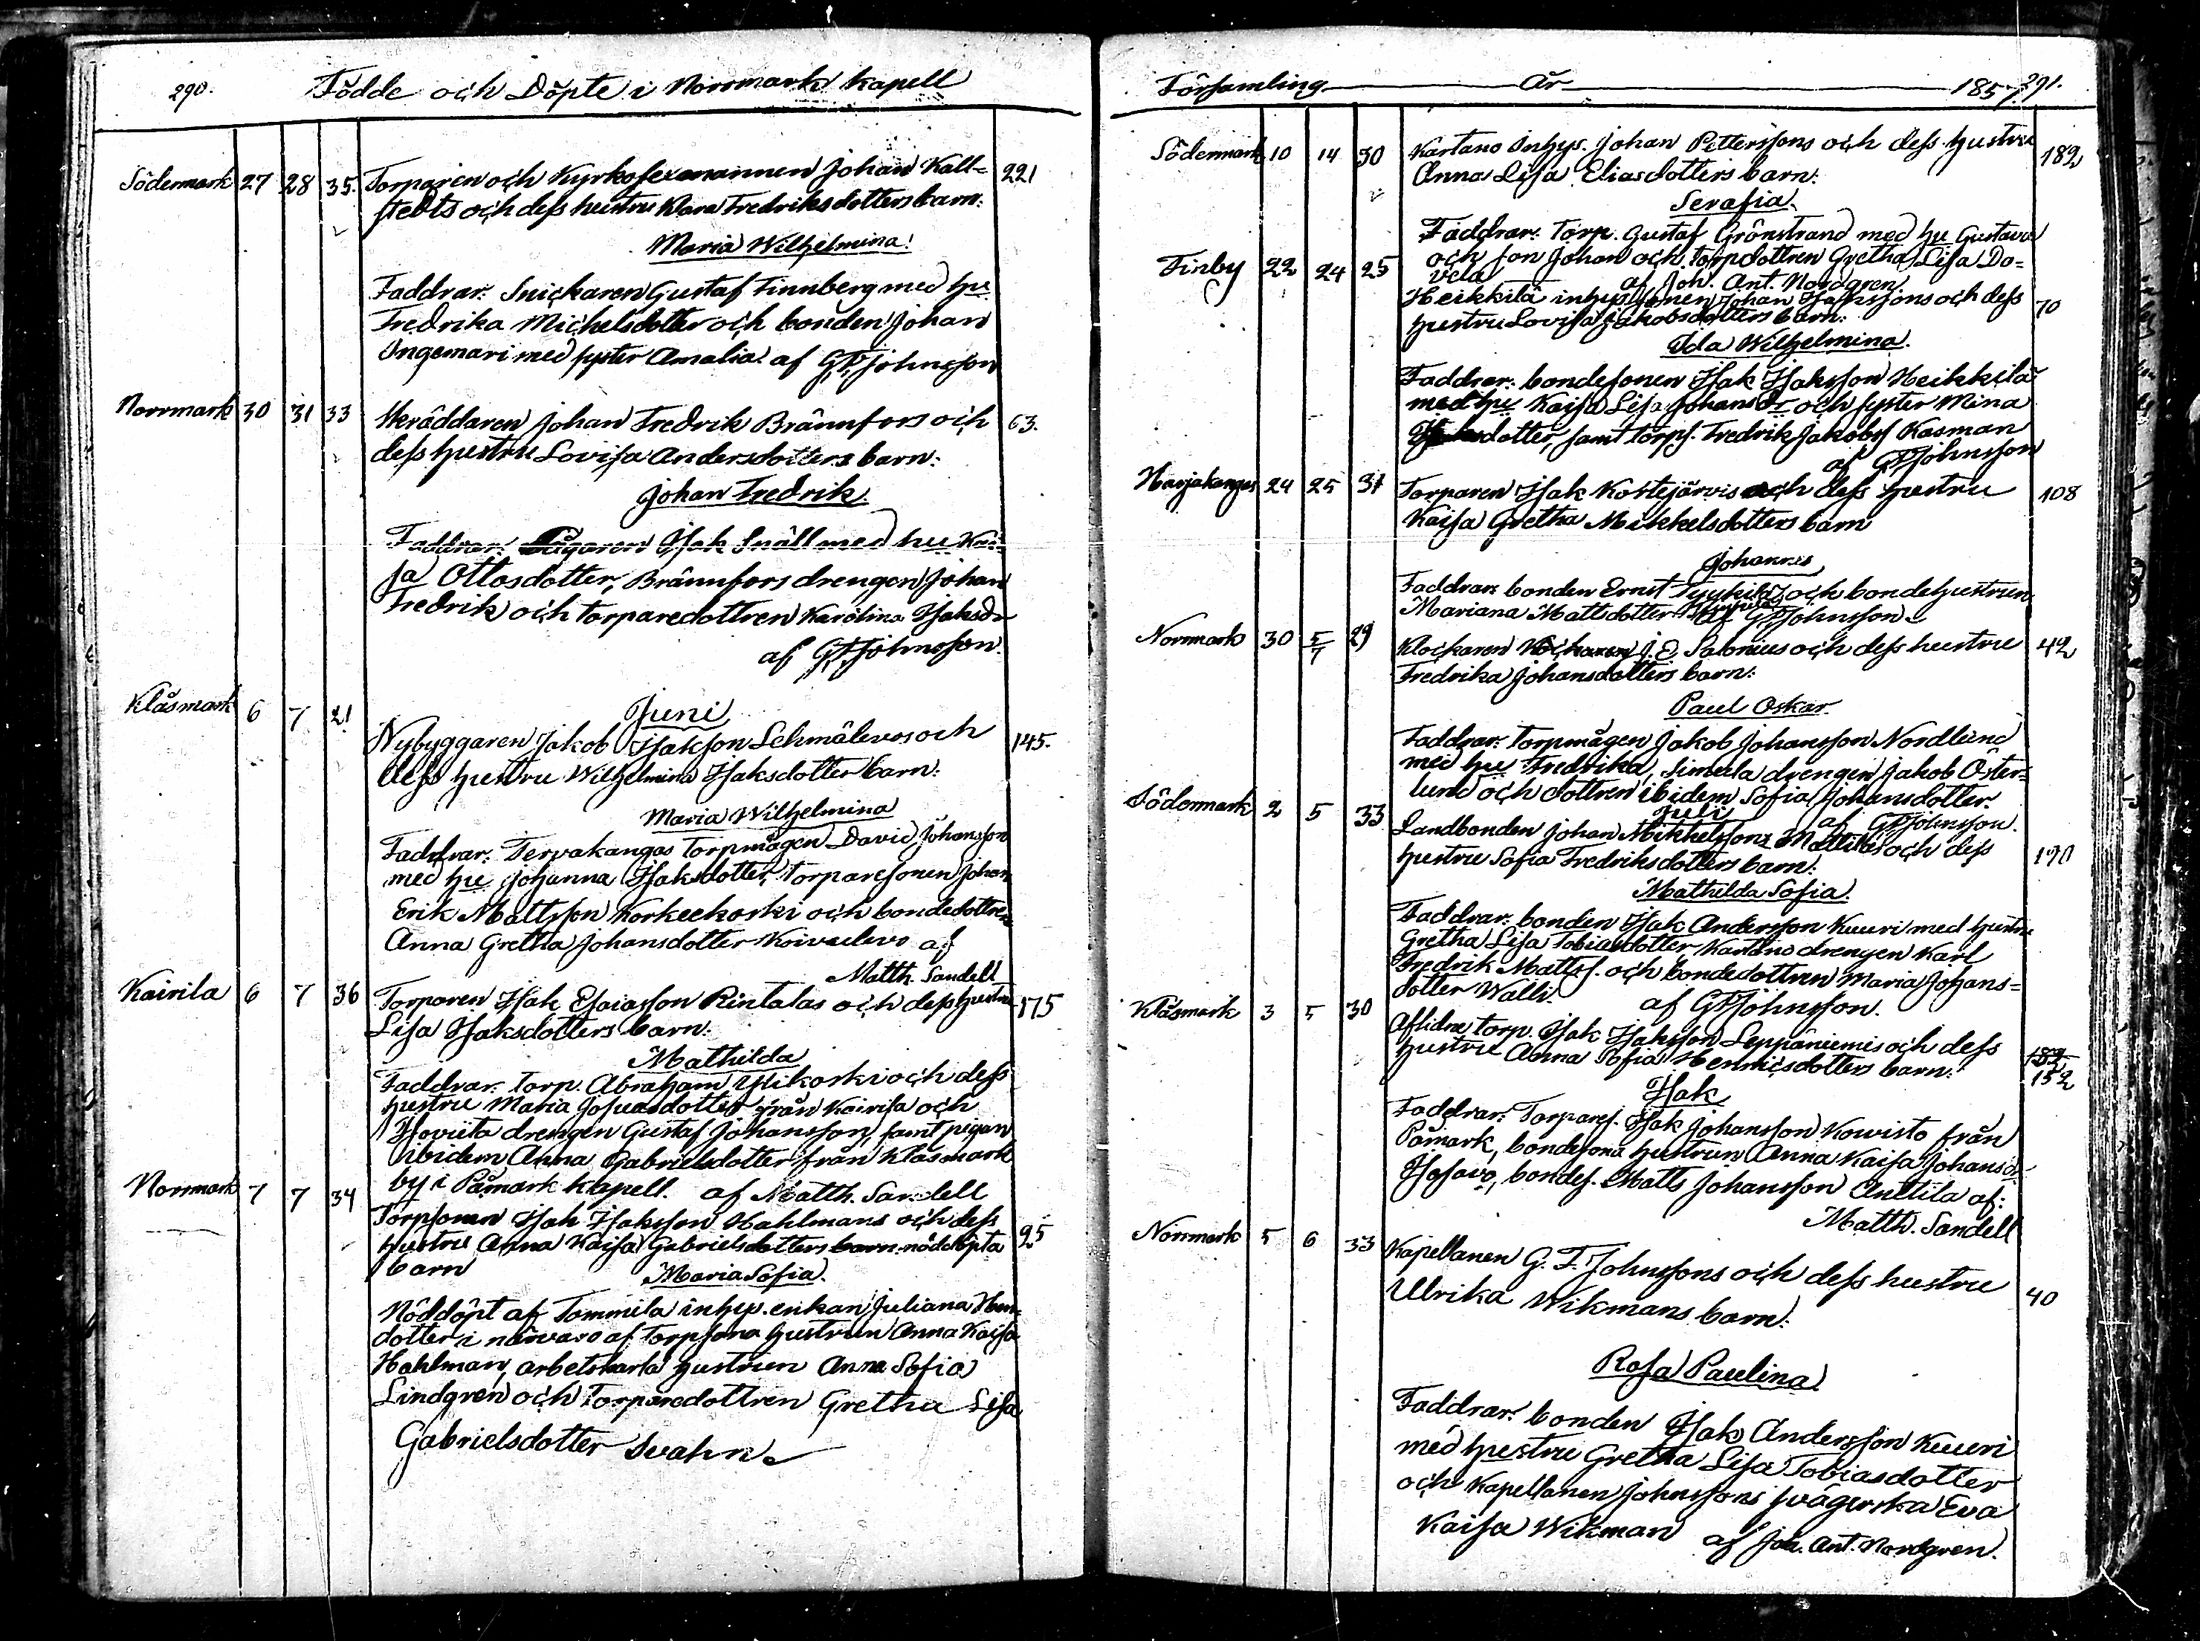 290. Födde och Döpte i Norrmark kapell
Södermark 27 28 35. Torparen och Kyrkosexmannen Johan Käll= 221
stedts och dess hustru Klara Fredriksdotters barn:
Maria Wilhelmina!
Faddrar: Snickaren Gustaf Finnberg med hu
Fredrika Michelsdotter och bonden Johan
Ingemari med syster Amalia. af GFJohnsson
Norrmark 30 31 33 Skräddaren Johan Fredrik Brännfors och 63.
dess hustru Lovisa Andersdotters barn:
Johan Fredrik.
Faddrar: Isak Snäll med hu Kai=
sa Ottosdotter, Brännfors drengen Johan
Fredrik och torparedottren Karolina Isaksdr
af GFJohnsson.
Juni
Klåsmark 6 7 21. Nybyggaren Jakob Isaksson Lehmälevos och 145.
dess hustru Wilhelmina Isaksdotter barn:
Maria Wilhelmina
Faddrar: Tervakangas torpmågen David Johansson
med hu Johanna Isaksdotter, torparesonen Johan
Erik Mattsson Korkeekoski och bondedottren
Anna Gretha Johansdotter Koivulevo af
Matth. Sandell
Kairila 6 7 36 Torparen Isak Esaiasson Rintalas och dess hustru 175
Lisa Isaksdotters barn:
Mathilda
Faddrar: torp. Abraham Ylikoski och dess
hustru Maria Josuasdotter från Kairila och
drengen Gustaf Johansson, samt pigan
ibidem Anna Gabrielsdotter från Klåsmark
by i Påmark kapell. af Matth. Sandell
Norrmark 7 7 34 Torpsonen Isak Isaksson Hahlmans och dess 95
hustru Anna Kaisa Gabrielsdotters barn nöddöpta
barn
Maria Sofia.
Nöddöpt af Tommila inhys. enkan Juliana
dotter i närvaro af torpsona hustrun Anna Kaisa
Hahlman, arbetskarla hustrun Anna Sofia
Lindgren och torparedottren Gretha Lisa
Gabrielsdotter Svahn.
Församling År 1857. 291.
Södermark 10 14 30 Kartano Inhys. Johan Petterssons och dess hustru 189
Anna Lisa Eliasdotters barn:
Serafia.
Faddrar: torp. Gustaf Grönstrand med hu Gustava
och son Johan och torpdottren Gretha Lisa Da=
vela af Joh. Ant. Nordgren.
Finby 22 24 25 Heikkilä inhys sonen Johan Isakssons och dess 70
hustru Lovisa Jakobsdotters barn:
Ida Wilhelmina.
Faddrar: bondesonen Isak Isaksson Heikkilä
med hu Kaisa Lisa Johansdr och syster Mina
Isaksdotter, samt torps. Fredrik Jakobs Kasman
af GFJohnsson
Harjakangas 24 25 31 Torparen Isak Kostejärvis och dess hustru 108
Kaisa Gretha Mikkelsdotters barn
Johannes
Faddrar: bonden Ernst och bondehustrun
Mariana Mattsdotter af GFJohnsson.
Norrmark 30 5/7 29 Klockaren J. E. Salonius och dess hustru 42
Fredrika Johansdotters barn:
Paul Oskar.
Faddrar: torpmågen Jakob Johansson Nordlund
med hu Fredrika, Simula drengen Jakob Öster=
lund och dottren ibidem Sofia Johansdotter.
af GFJohnsson.
Juli
Södermark 2 5 33 Landbonden Johan Mikkelssons Mattilas och dess 190
hustru Sofia Fredriksdotters barn:
Mathilda Sofia.
Faddrar: bonden Isak Andersson Kuuri med hustru
Gretha Lisa Tobiasdotter, Kartano drengen Karl
Fredrik Mattss. och bondedottren Maria Johans=
dotter Walli. af GFJohnsson.
Klåsmark 3 5 30 Aflidne torp. Isak Isaksson Leppäniemis och dess 189
hustru Anna Sofia Henricsdotters barn: 152
Isak
Faddrar: Torpares. Isak Johansson Kowisto från
Påmark, bondesona hustrun Anna Kaisa Johansdr
Isosavo, bondes. Matts Johansson Anttila af:
Matth. Sandell
Norrmark 5 6 33 Kapellanen G. F. Johnssons och dess hustru 40
Ulrika Wikmans barn:
Rosa Paulina.
Faddrar: bonden Isak Andersson Kuuri
med hustru Gretha Lisa Tobiasdotter
och Kapellanen Johnssons svägerska Eva
Kaisa Wikman af Joh. Ant. Nordgren.